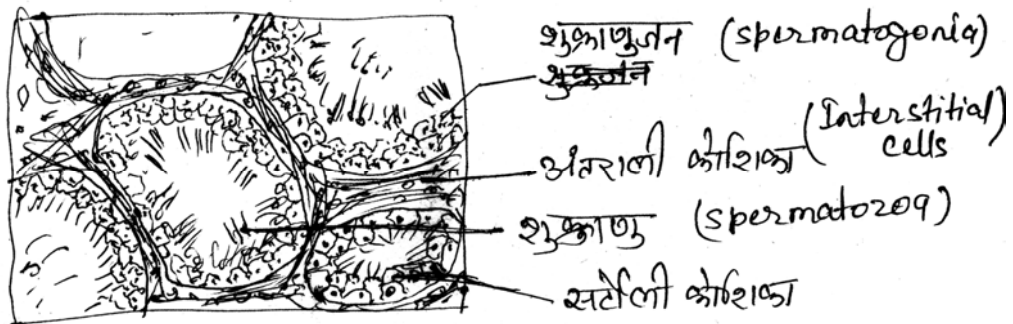 शुक्राणुजन (spermatogonia)
अंतराली कोशिका (Interstitial cells)
शुक्राणु (spermatozoa)
सर्टोली कोशिका